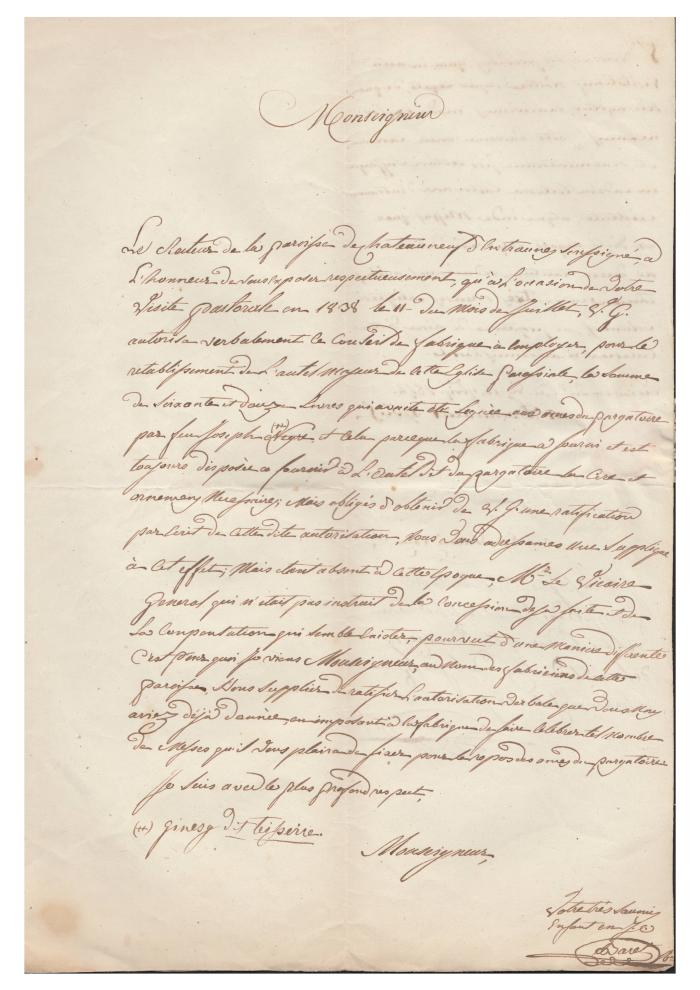 Monseigneur
Le Recteur de la paroisse de Chateauneuf d'Entraunes soussigné a
L'honneur de vous exposer respectueusement, qu'à l'occasion de votre
Visite pastorale en 1838 le 11 du mois de Juillet, V. G.
autorisa verbalement le Conseil de fabrique à employer, pour le
rétablissement de L'autel majeur de cette Eglise paroissiale, la somme
de soixante et douze Livres qui avoite été léguée aux ames du purgatoire
par feu Joseph (**) Negre et cela parceque la fabrique a fourni et est
toujours disposée a fournir à L'autel dit du purgatoire la cire et
ornemens necessaires; Mais obligés d'obtenir de V. G. une ratification
par écrit de cette dite autorisation, nous vous adressames une supplique
à cet effet; Mais etant absent à cette époque, Mr. Le Vicaire
General qui n'étoit pas instruit de la concession deja faite et de
la compensation qui semble exister, pourvut d'une maniere differente
C'est pourquoi je viens Monseigneur, au nom des fabriciens de cette
paroisse, vous supplier de ratifier l'autorisation verbale que vous nous
aviez déjà donnée en imposant à la fabrique de faire celebrer tel nombre
de Messes qu'il vous plaira de fixer pour le repos des ames du purgatoire
Je suis avec le plus profond respect,
(**) Ginesy dit teisseire.
Monseigneur,
Votre très soumis
Enfant en J. C.